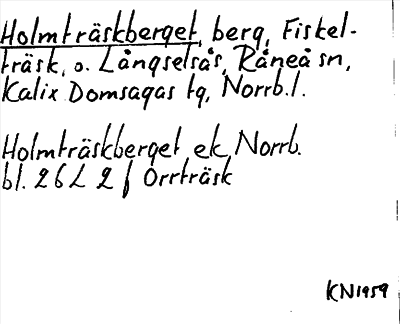 Holmträskberget, berg, Fiskel-
träsk, o. Långselsås, Råneå sn,
Kalix Domsagas tg, Norrb. l.
Holmträskberget ek, Norrb.
bl. 26L 2 f Orrträsk
KN1959